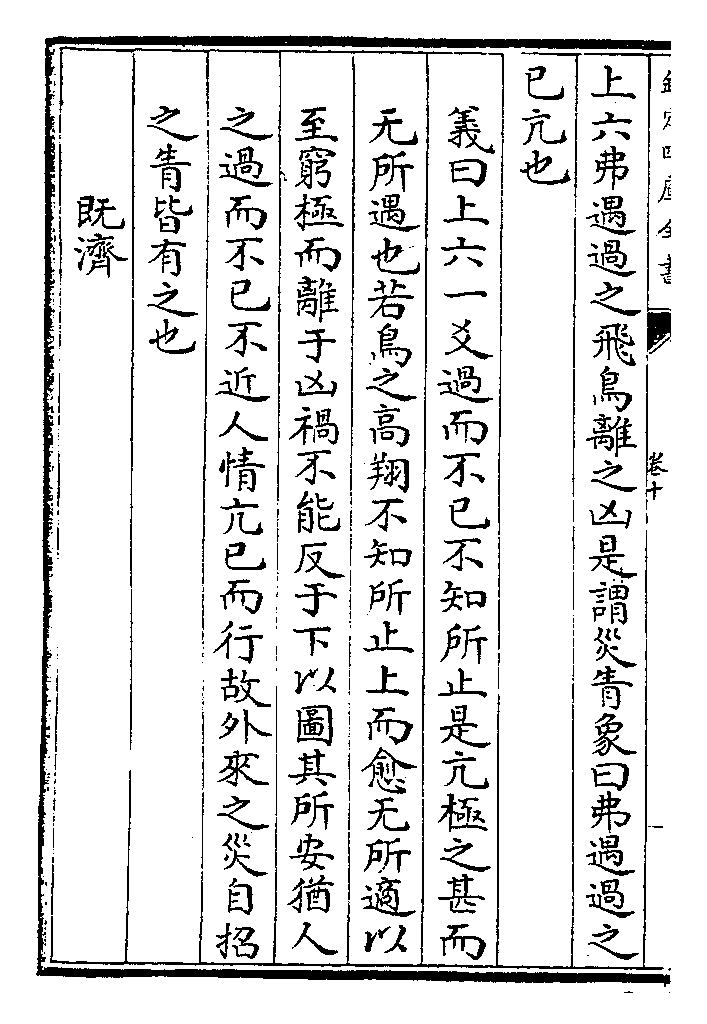 欽定四庫全書
卷十
上六弗遇過之飛鳥離之凶是謂災眚象曰弗遇過之
已亢也
義曰上六一爻過而不已不知所止是亢極之甚而
无所遇也若鳥之高翔不知所止上而愈无所適以
至窮極而離于凶禍不能反于下以圖其所安猶人
之過而不已不近人情亢已而行故外來之災自招
之眚皆有之也
既濟